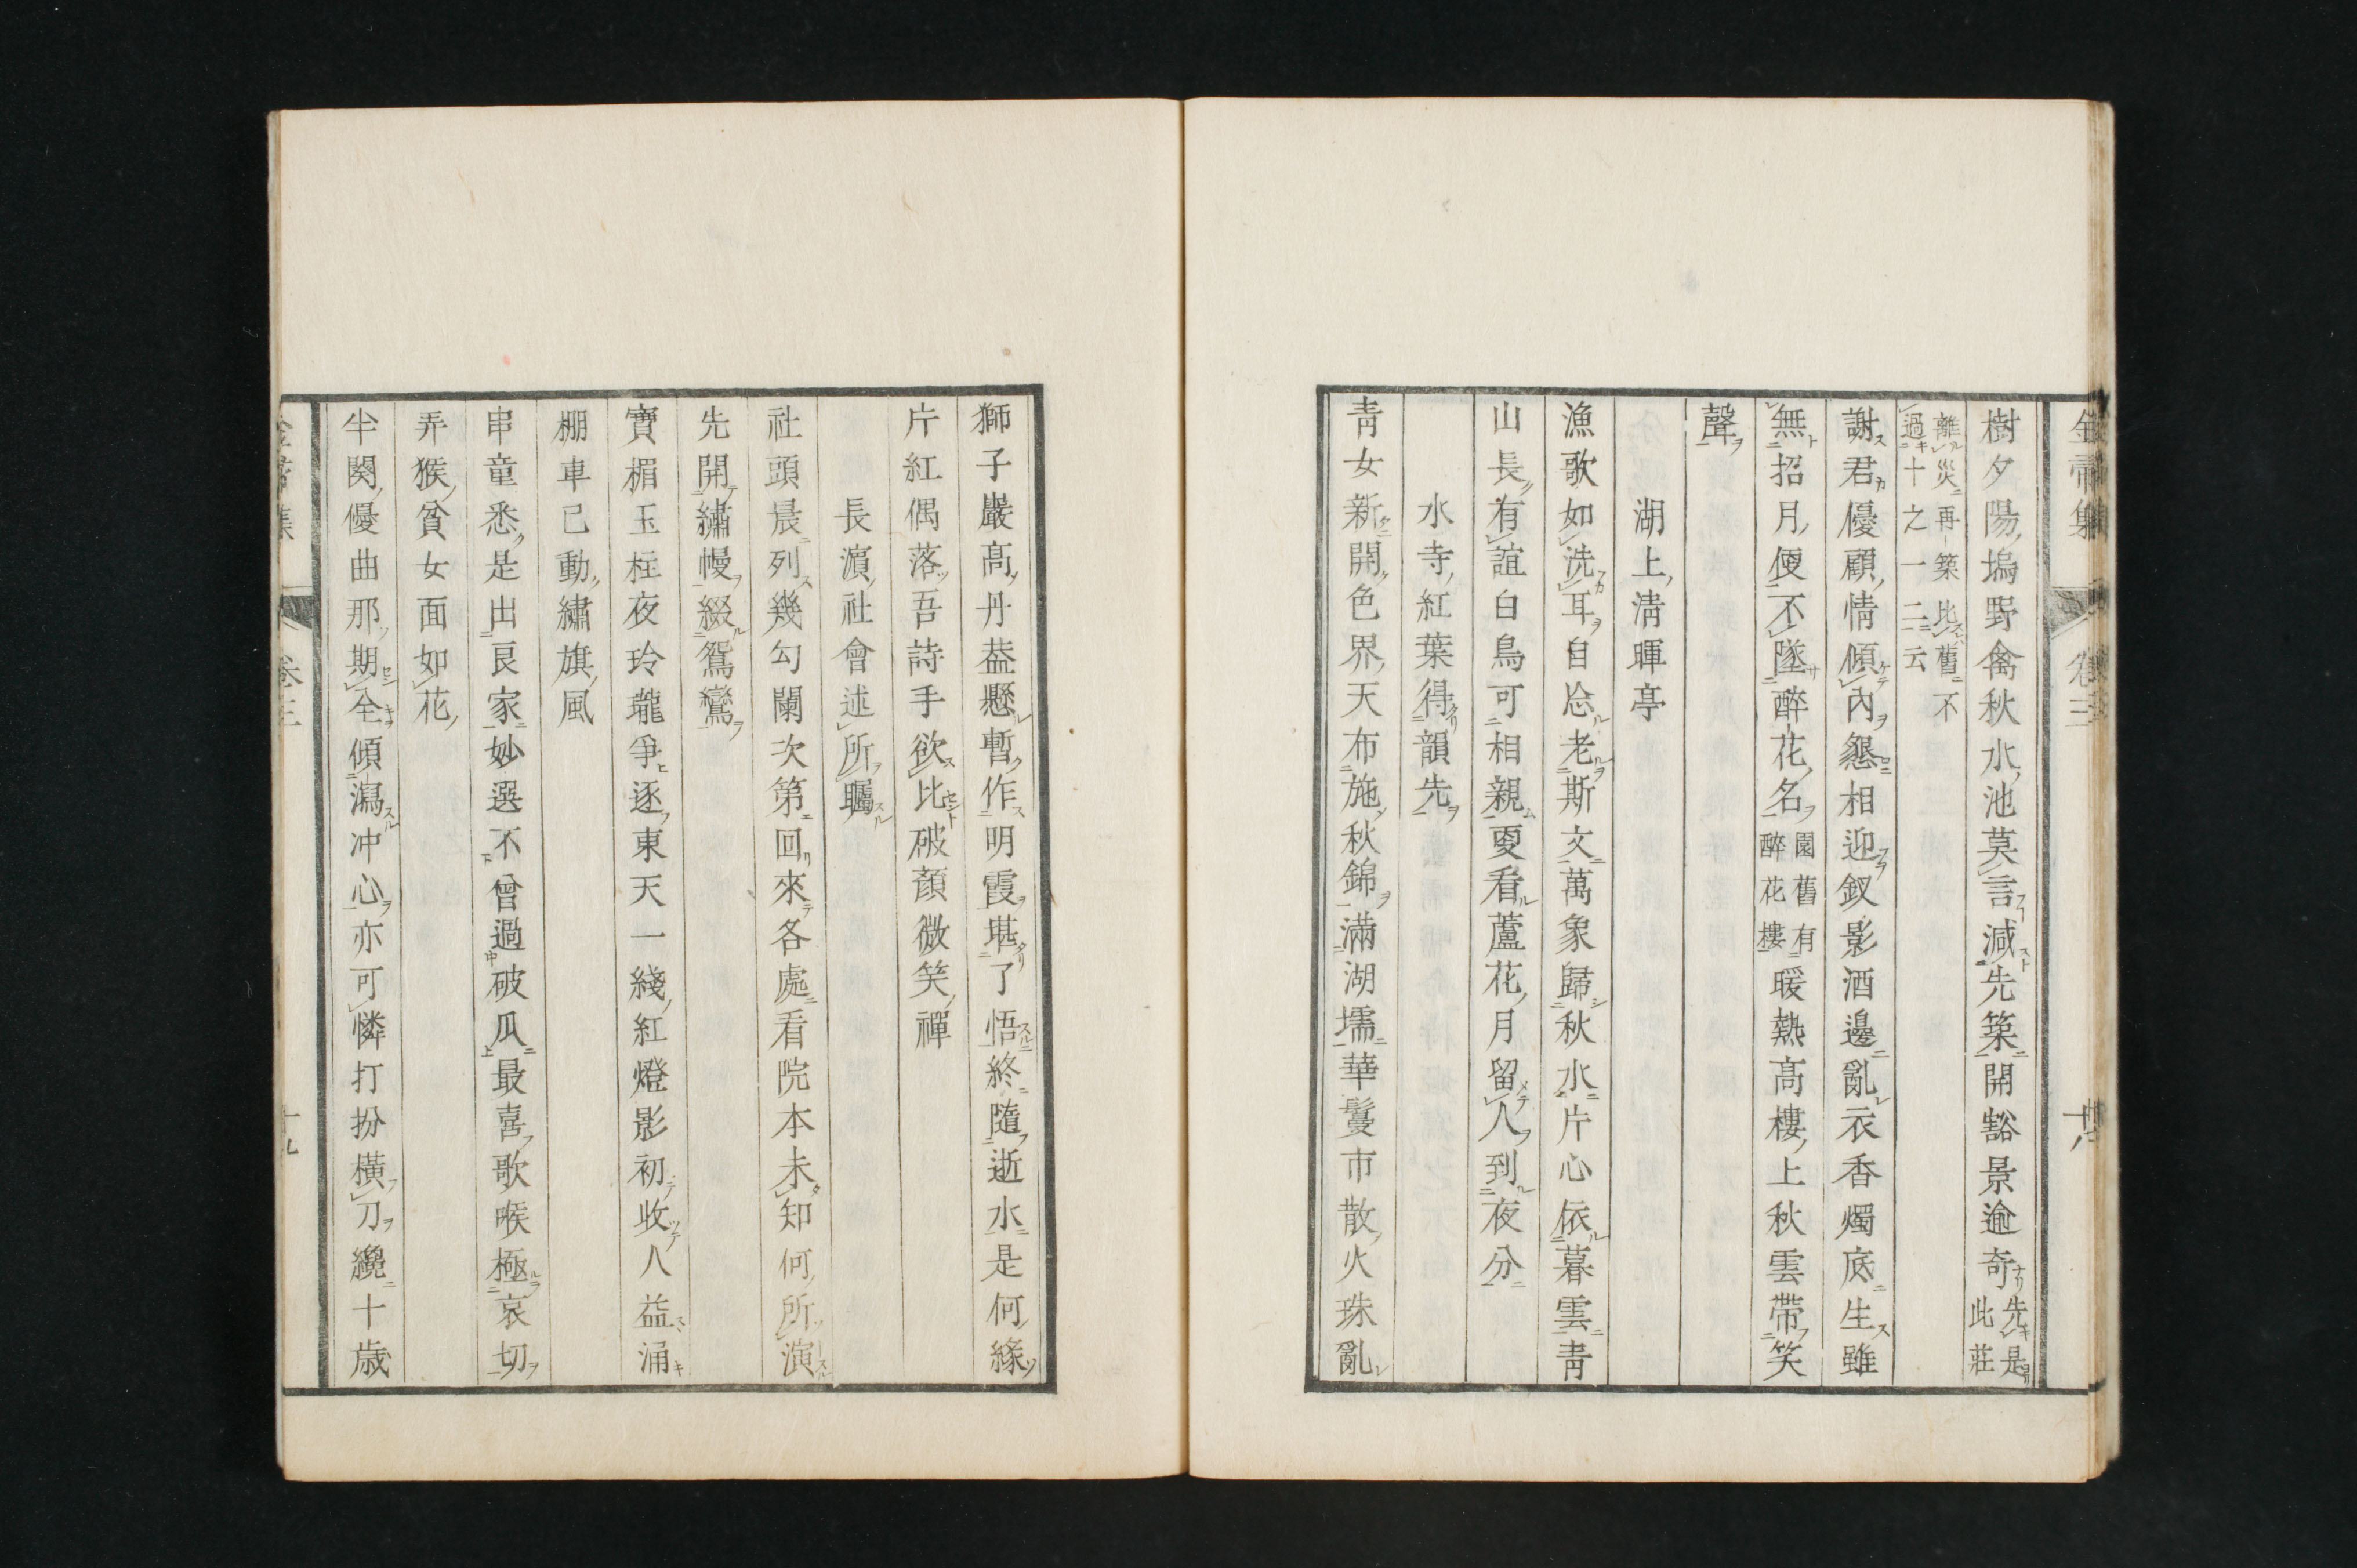 金帚集 卷三 十八
樹夕陽塢野禽秋水池莫言減先築開豁景逾奇先是此莊
離災再築比舊不過十之一二云
謝君優顧情傾內懇相迎釵影酒邊亂衣香燭底生雖
無招月便不墜醉花名園舊有醉花樓暖熱高樓上秋雲帶笑
聲
湖上清暉亭
漁歌如洗耳自忘老斯文萬象歸秋水片心依暮雲青
山長有誼白鳥可相親更看蘆花月留人到夜分
水寺紅葉得韻先
青女新開色界天布施秋錦滿湖壖華鬘市散火珠亂
獅子巖高丹葢懸暫作明霞堪了悟終隨逝水是何緣
片紅偶落吾詩手欲比破顏微笑禪
長濵社會述所矚
社頭晨列幾勾闌次第回來各處看院本未知何所演
先開繡幔綴鴛鸞
寶楣玉柱夜玲瓏爭逐東天一綫紅燈影初收人益涌
棚車已動繡旗風
串童悉是出良家妙選不曾過破瓜最喜歌喉極哀切
弄猴貧女面如花
半闋優曲那期全傾瀉冲心亦可憐打扮橫刀纔十歳
卷三 十九